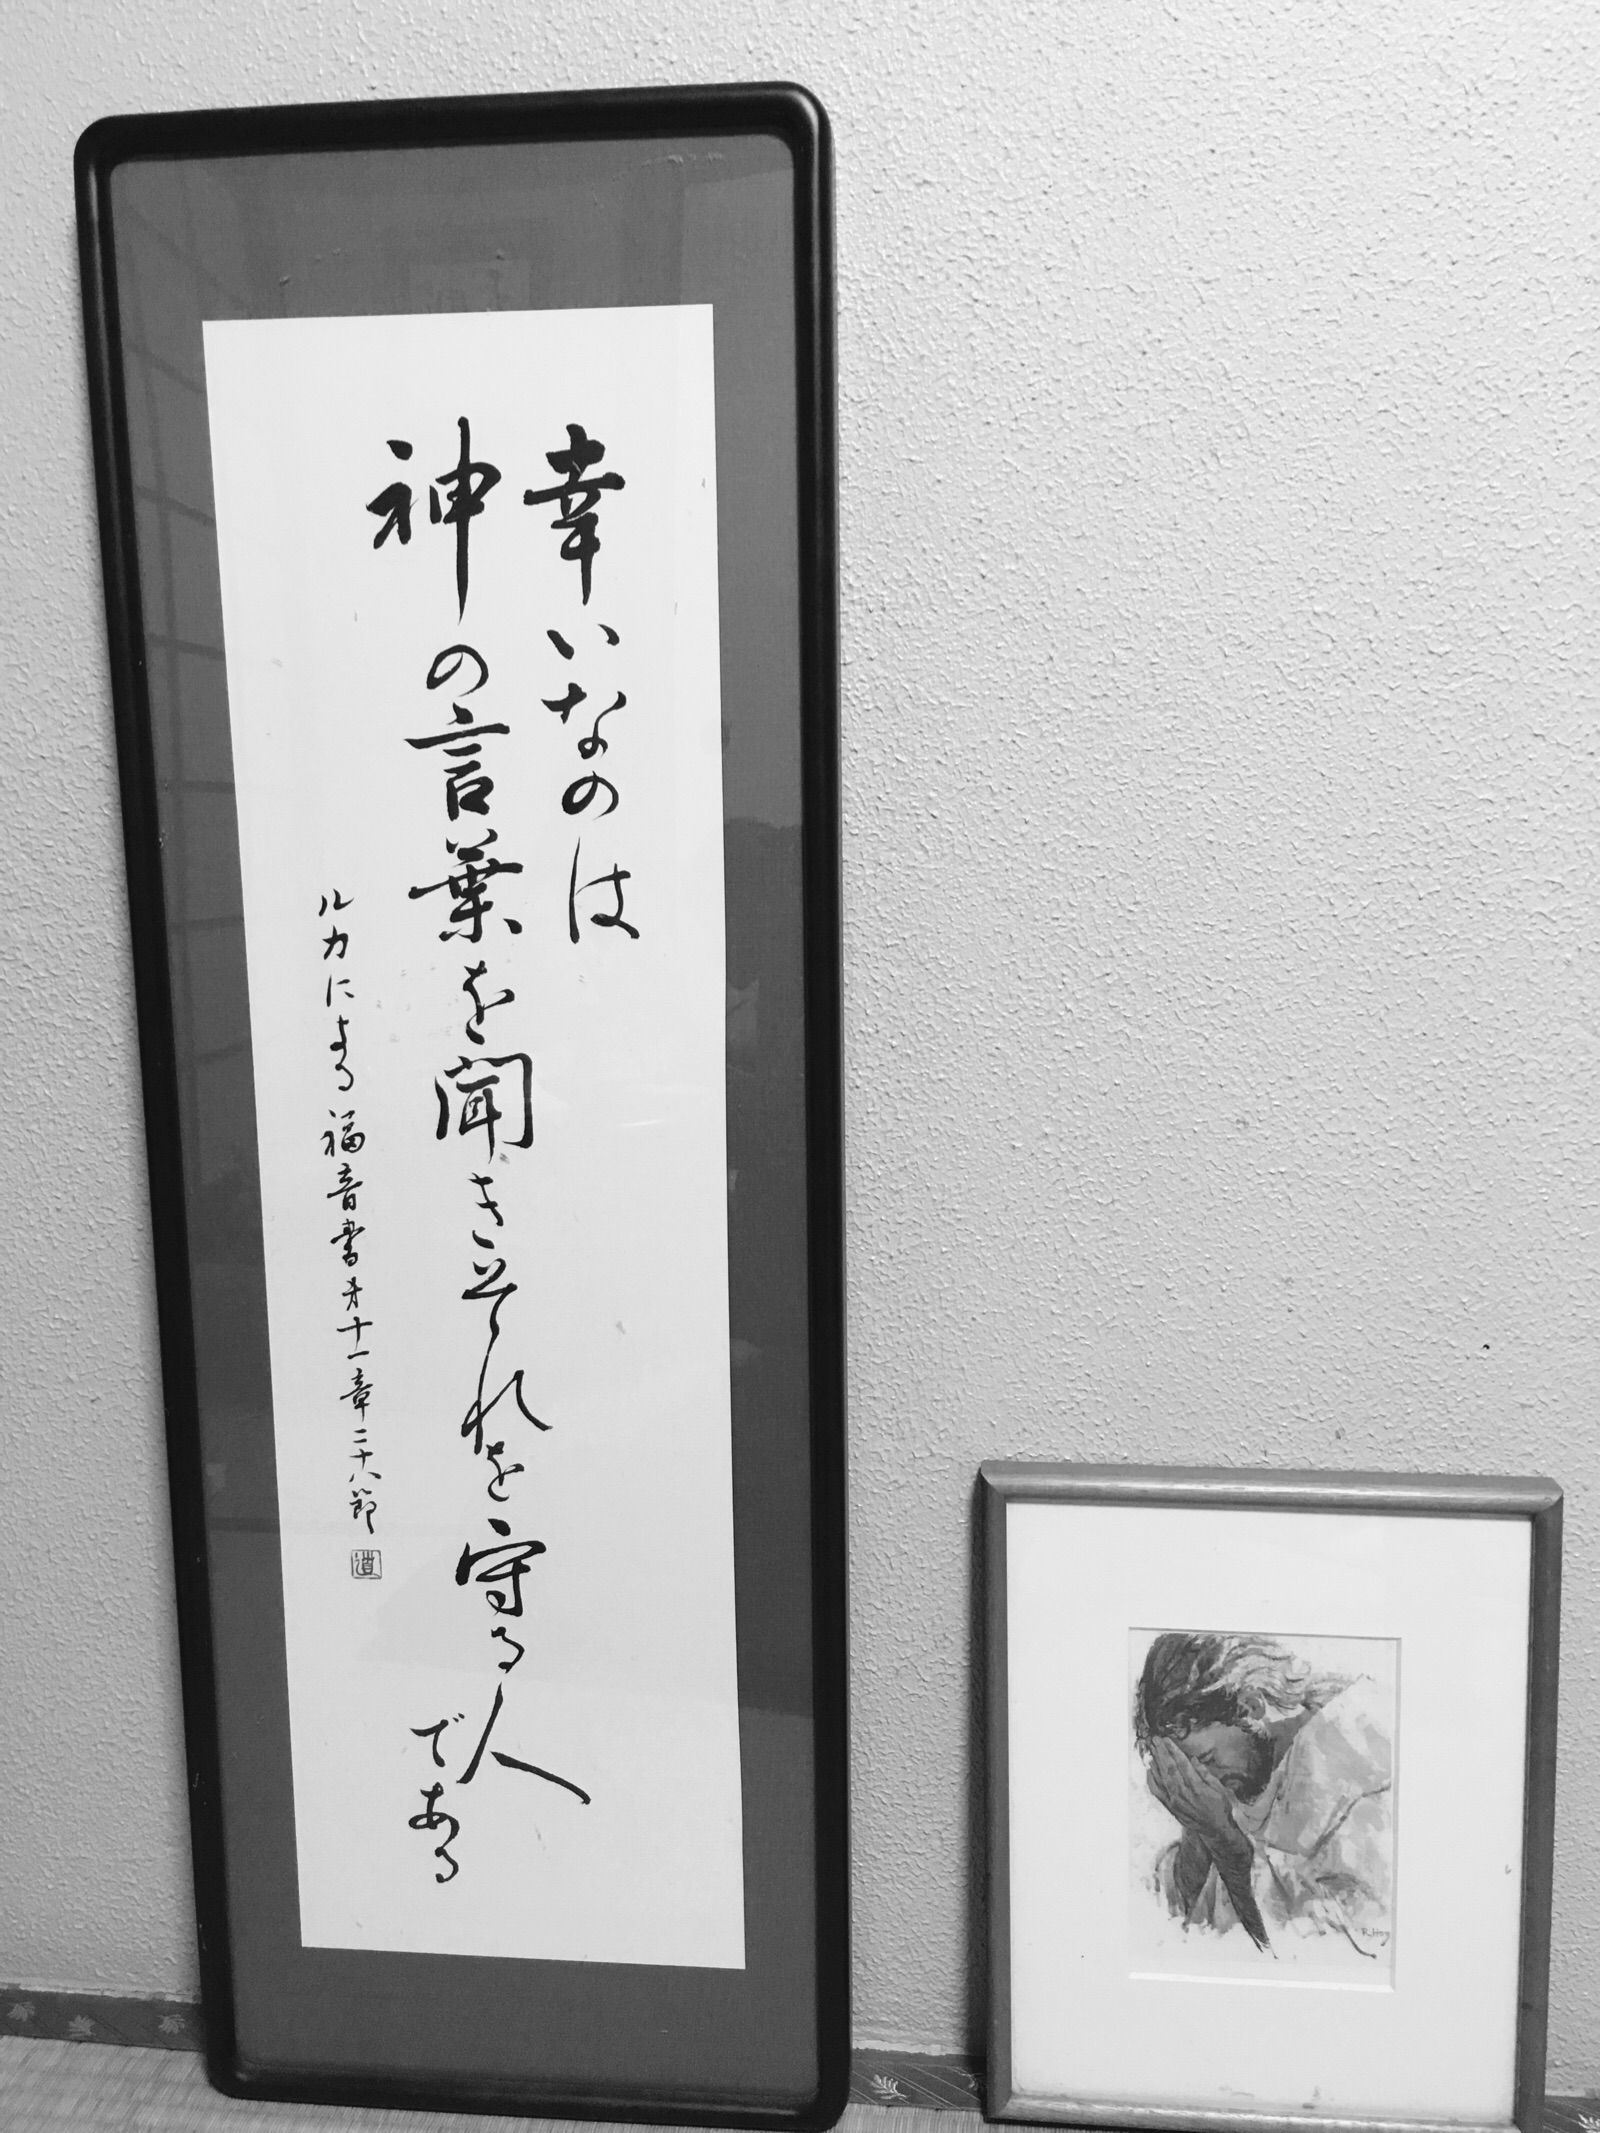 幸いなのは
神の言葉を聞きそれを守る人
である
ルカによる福音書才十一章二十八節
道
R. Hoy